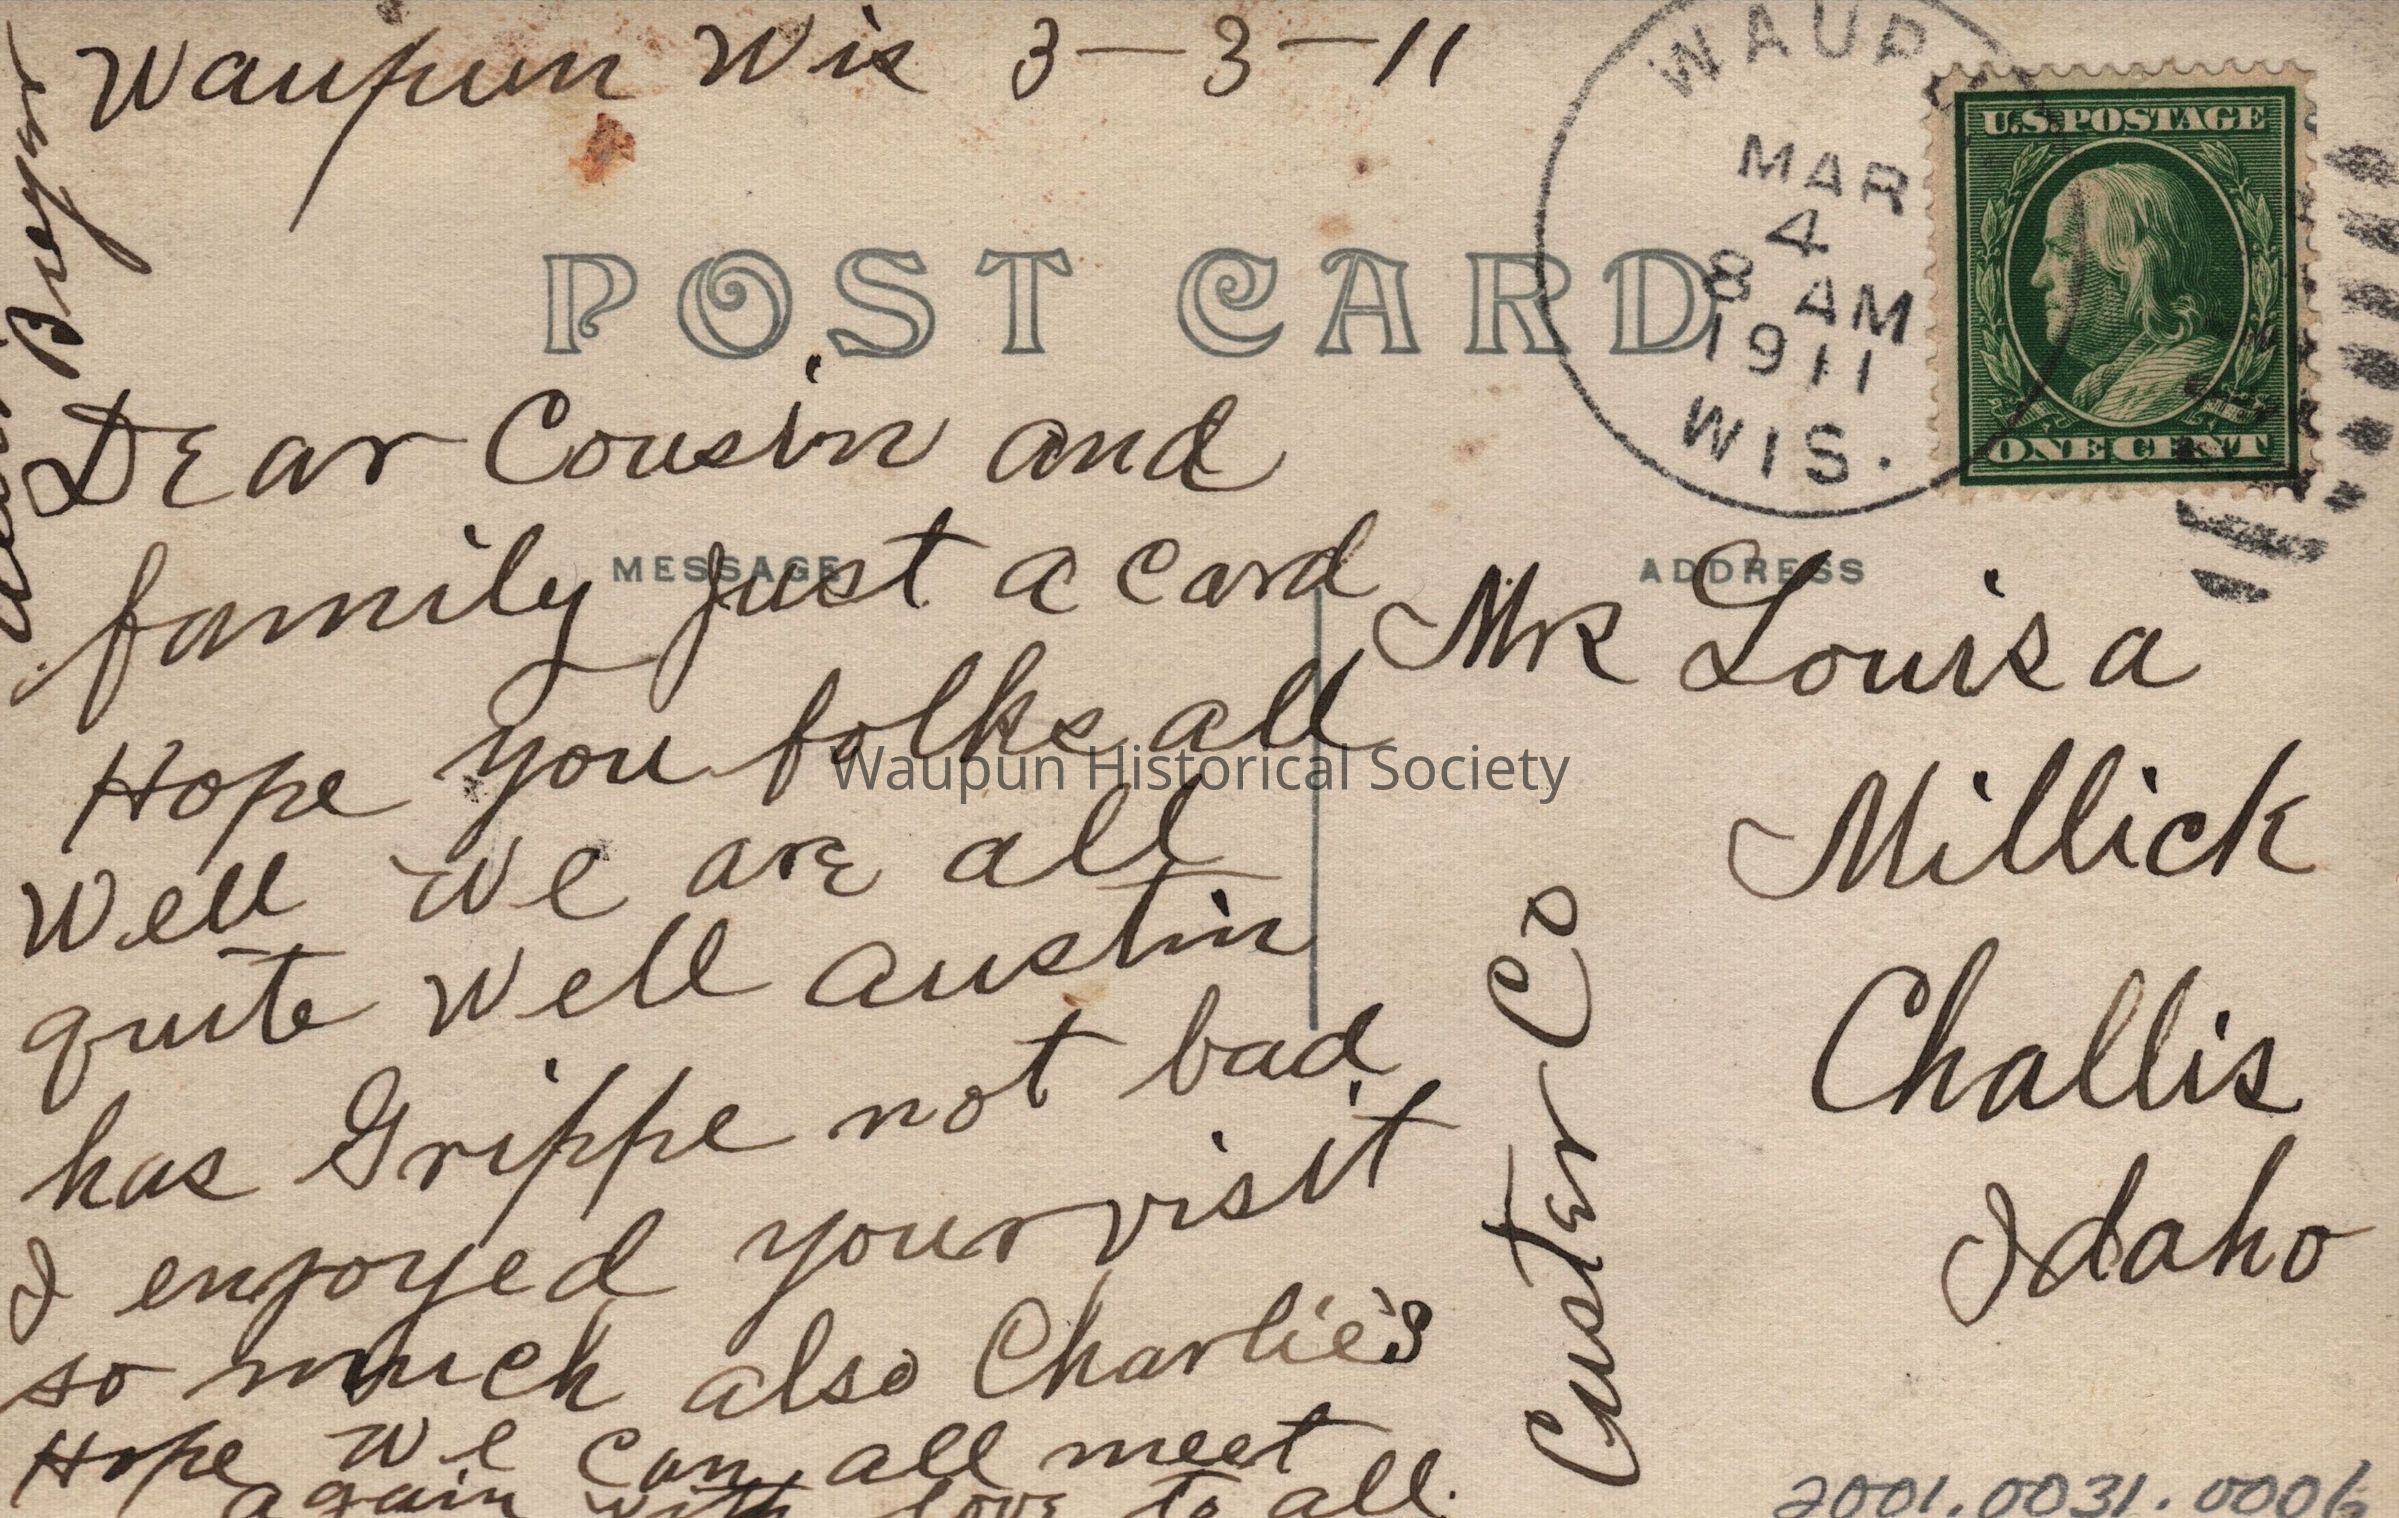 Waupun Wis 3-3-11
POST CARD
WAUPUN
MAR
4
8 AM
1911
WIS.
U.S. POSTAGE
ONE CENT
MESSAGE
ADDRESS
Dear Cousin and
family Just a card
Hope you folks all
Well We are all
quite well Austin
has Grippe not bad.
I enjoyed your visit
so much also Charlie's
Hope We can all meet
again with love to all.
Mrs Louisa
Millick
Challis
Idaho
Custer Co
Waupun Historical Society
2001.0031.0006